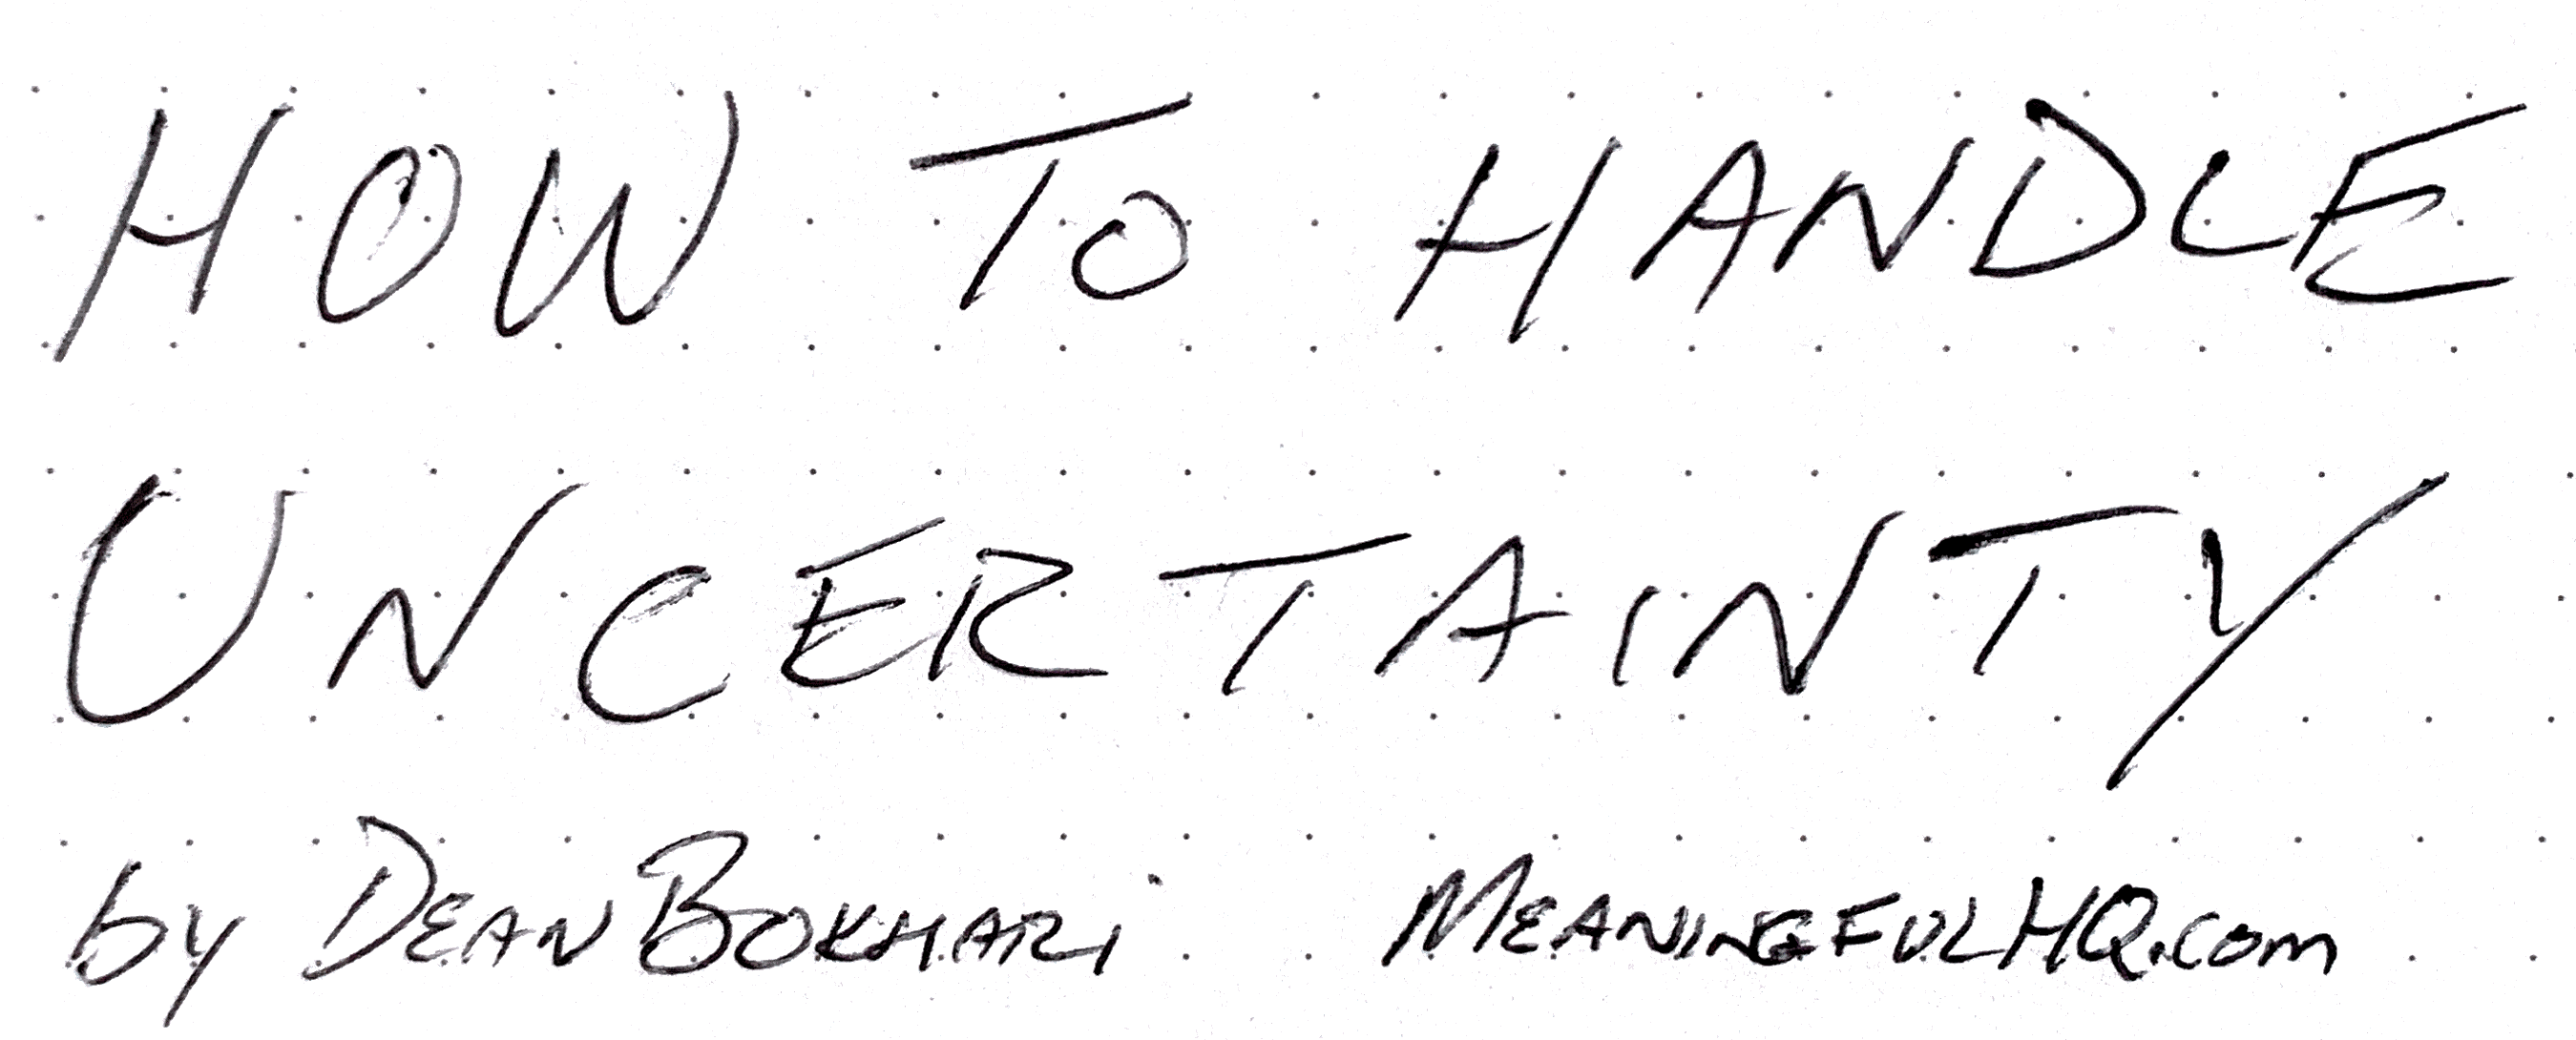 HOW TO HANDLE
UNCERTAINTY
by DEAN BOKHARI MEANINGFULHQ.com